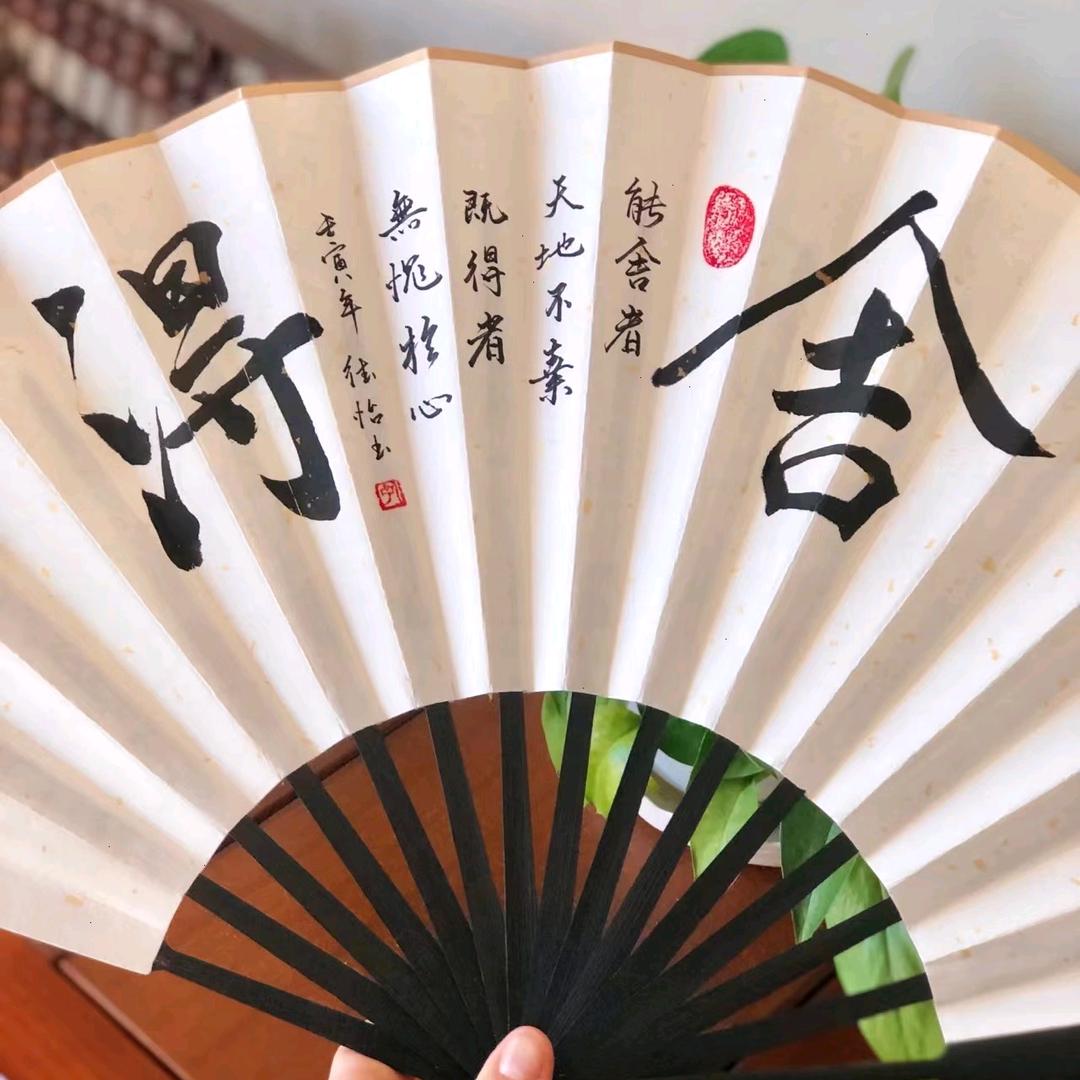 舍
能舍者
天地不棄
既得者
無愧於心
壬寅年 怡书
得